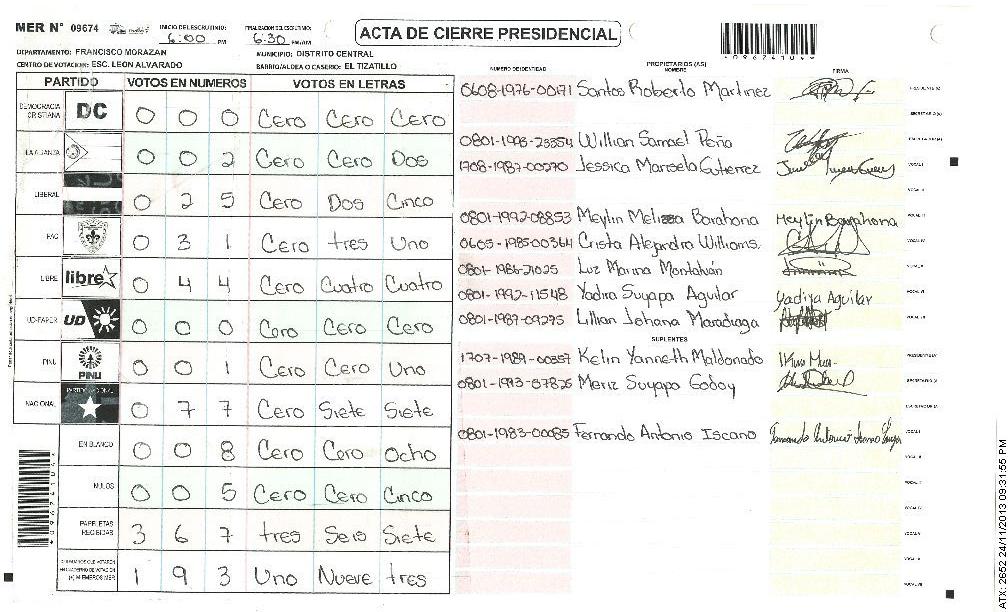 MER N° 09674
INICIO DEL ESCRUTINIO: 6:00 PM
FINALIZACION DEL ESCRUTINIO: 6:30 PM/AM
ACTA DE CIERRE PRESIDENCIAL
*09624104*
DEPARTAMENTO: FRANCISCO MORAZAN
MUNICIPIO: DISTRITO CENTRAL
CENTRO DE VOTACION: ESC. LEON ALVARADO
BARRIO/ALDEA O CASERIO: EL TIZATILLO
PARTIDO VOTOS EN NUMEROS VOTOS EN LETRAS
DEMOCRACIA CRISTIANA DC 0 0 0 Cero Cero Cero
LA ALIANZA 0 0 2 Cero Cero Dos
LIBERAL 0 2 5 Cero Dos Cinco
PAC 0 3 1 Cero tres Uno
LIBRE libre 0 4 4 Cero Cuatro Cuatro
UD-FAPER UD 0 0 0 Cero Cero Cero
PINU PINU 0 0 1 Cero Cero Uno
NACIONAL PARTIDO NACIONAL 0 7 7 Cero Siete Siete
EN BLANCO 0 0 8 Cero Cero Ocho
NULOS 0 0 5 Cero Cero Cinco
PAPELETAS RECIBIDAS 3 6 7 tres Seis Siete
CIUDADANOS QUE VOTARON EN CUADERNO DE VOTACION (+) MIEMBROS MER 1 9 3 Uno Nueve tres
NUMERO DE IDENTIDAD PROPIETARIOS (AS) NOMBRE FIRMA
0608-1976-00171 Santos Roberto Martinez PRESIDENTE (A)
SECRETARIO (A)
Willian Samael Peña ESCRUTADOR (A)
1708-1987-00270 Jessica Marisela Gutierrez VOCAL I
VOCAL II
0801-1992-08853 Meylin Melissa Barahona Meylin Barahona VOCAL III
0605-1985-00364 Crista Alejandra Williams. VOCAL IV
0801-1986-21025 Luz Marina Montalván VOCAL V
0801-1992-11548 Yadira Suyapa Aguilar Yadira Aguilar VOCAL VI
0801-1987-09275 Lillian Johana Maradiaga VOCAL VII
SUPLENTES
1707-1989-00357 Kelin Yanneth Maldonado PRESIDENTE (A)
0801-1993-07825 Meriz Suyapa Godoy SECRETARIO (A)
ESCRUTADOR (A)
0801-1983-00085 Fernando Antonio Iscano VOCAL I
VOCAL II
VOCAL III
VOCAL IV
VOCAL V
VOCAL VI
VOCAL VII
*09624104*
ATX: 2652 24/11/2013 09:31:55 PM